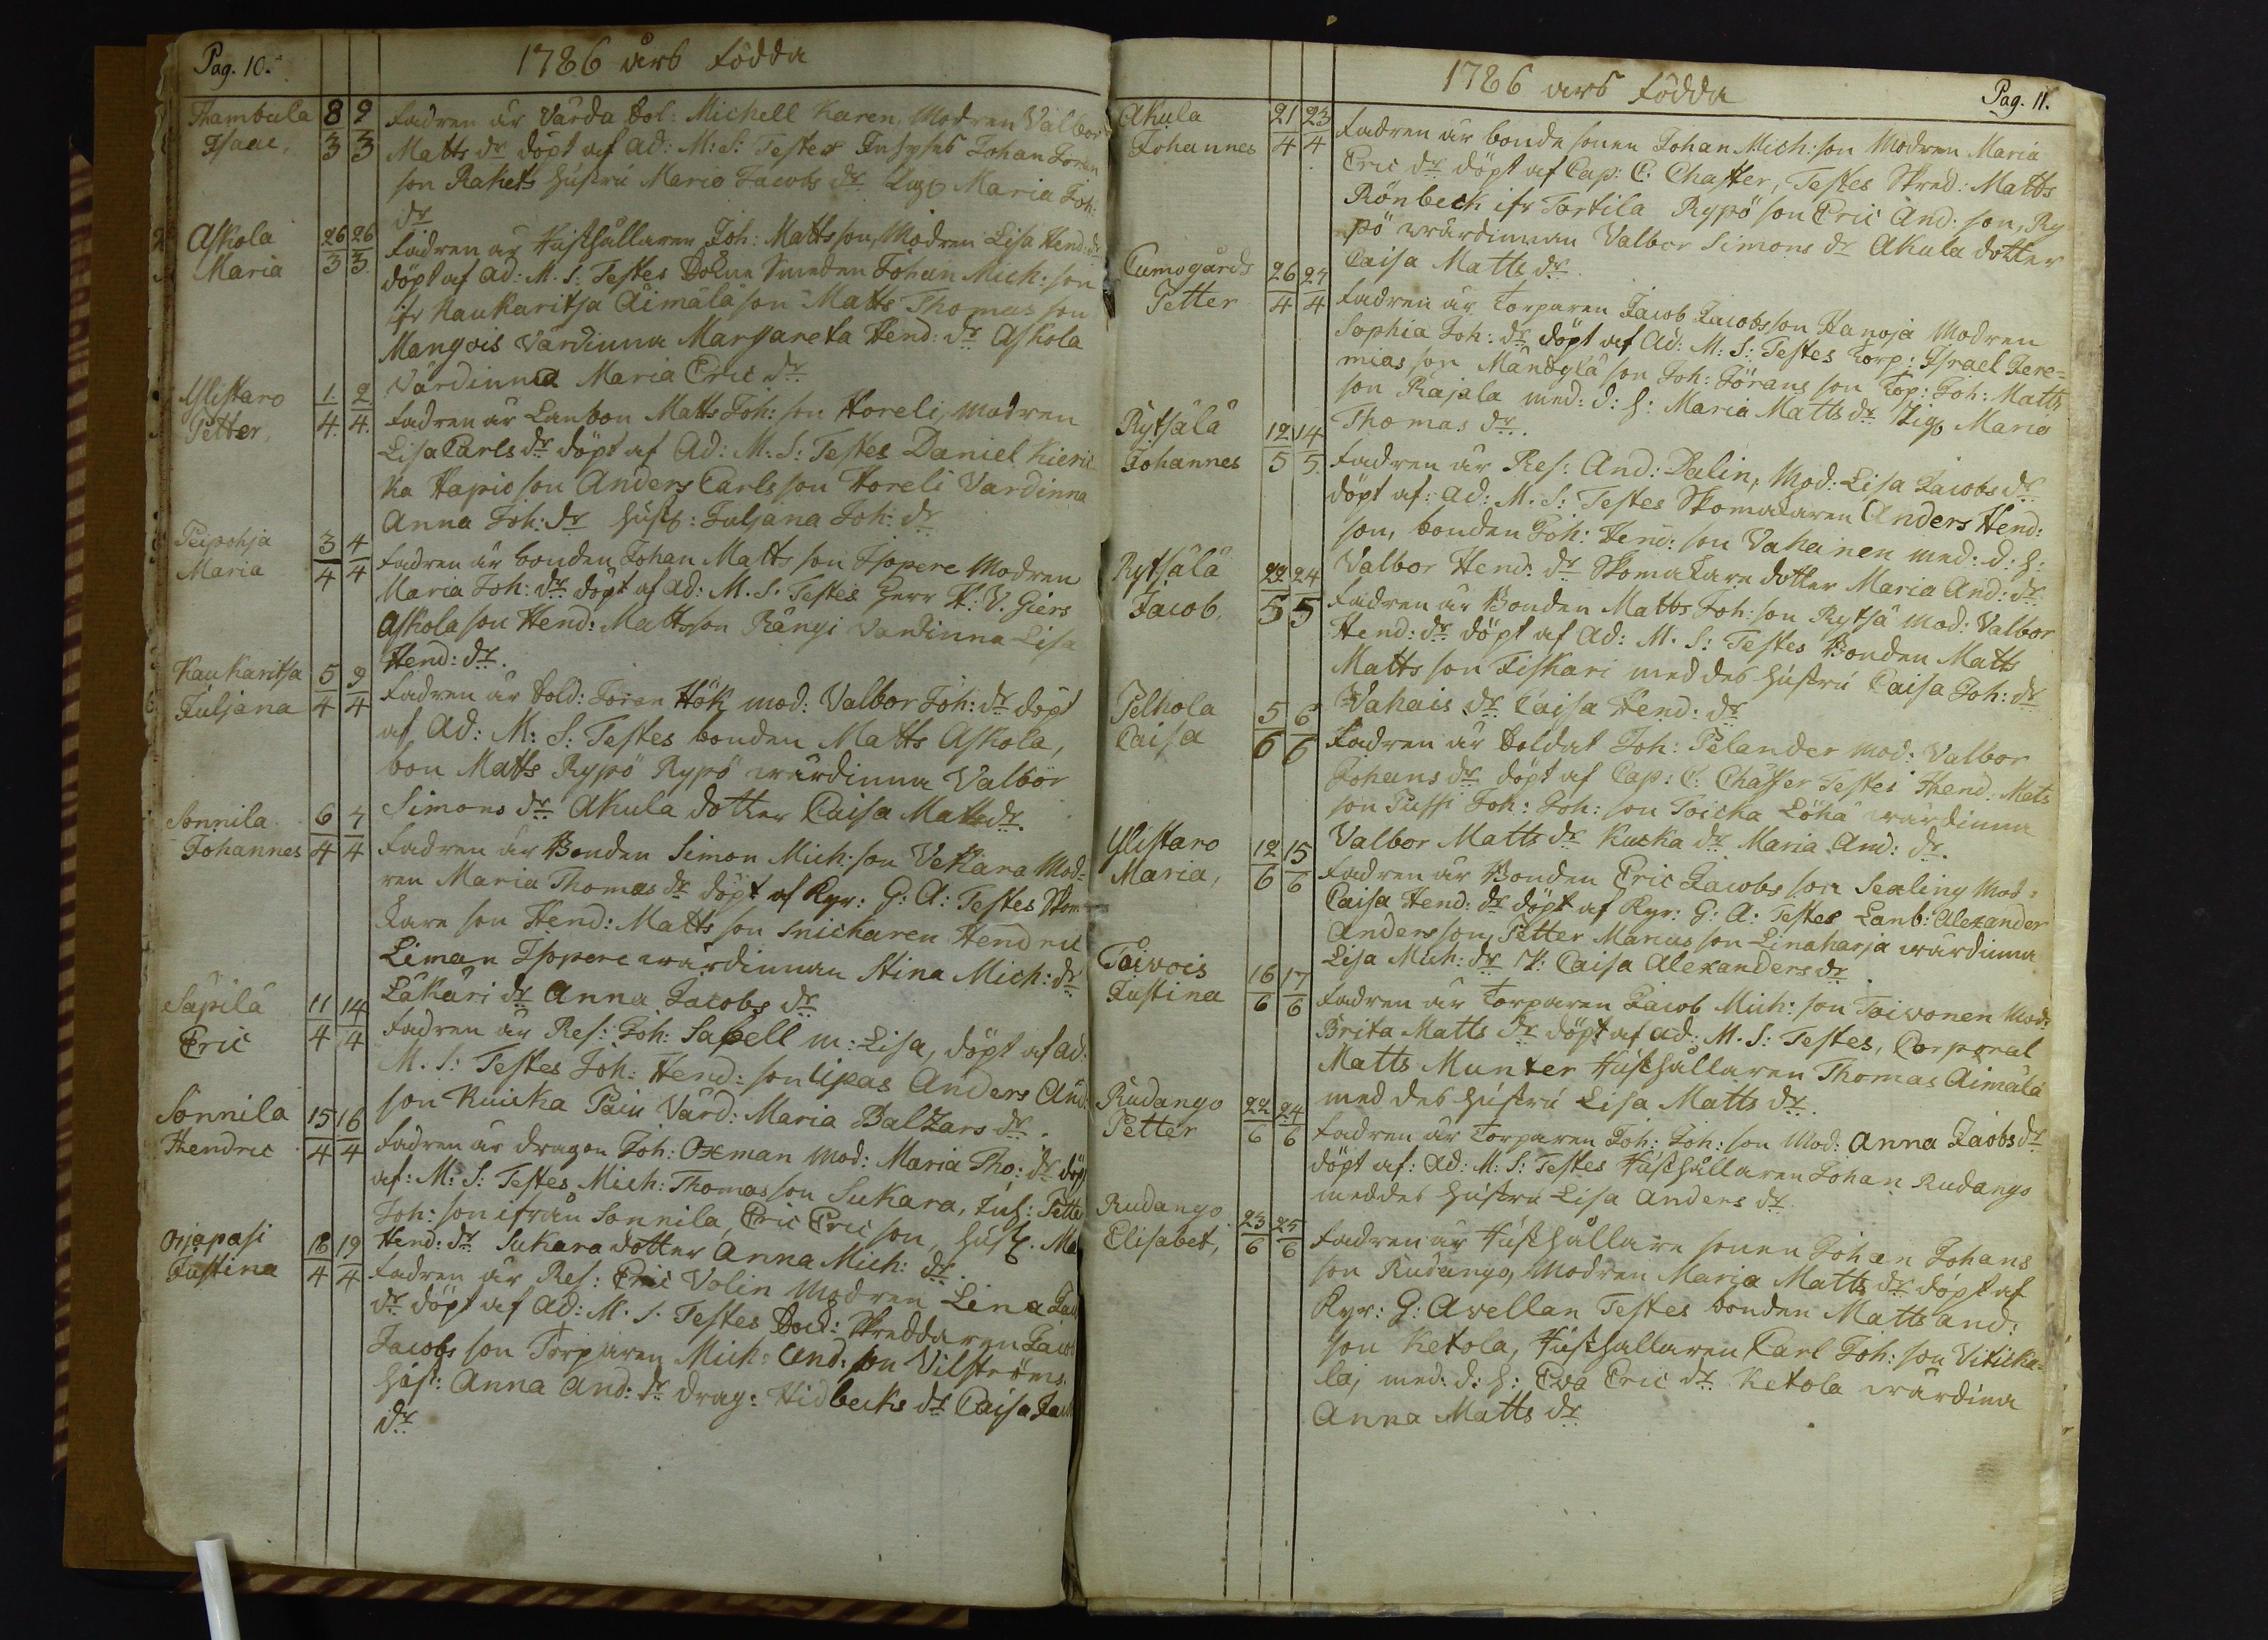 Pag. 10.
1786 års födda
Thambula 8/3 9/3 fadren är Varda Sol: Michell Karen, Modren Valbor
Isaac, Matts dr döpt af Ad: M: S: Testes Johan Jöran
son Rakets hustru Maria Jacobs dr Maria Joh:
dr
Askola 26/3 26/3 fadren är Hushållaren Joh: Mattsson, Modren Lisa Hend: dr
Maria döpt af Ad: M. S: Testes Smeden Johan Mich: son
ifr Kaukaritsa Äimälä son Matts Thomas son
Mangois Värdinna Margareta Hend: dr Askola
Värdinna Maria Eric dr
Ylistaro 1/4 2/4 fadren är Lanbon Matts Joh: son Horeli, modren
Petter, Lisa Carls dr döpt af Ad: M. S: Testes Daniel Kieric
ka Hapio son Anders Carls son Horeli Vardinna
Anna Joh: dr hust: Juljana Joh: dr
Peipohja 3/4 4/4 fadren är bonden Johan Matts son Ippere Modren
Maria Maria Joh: dr döpt af Ad: M. S. Testes Herr H: V. Giers
Askola son Hend: Mattsson Rängi Vardinna Lisa
Hend: dr.
Kaukaritsa 5/4 9/4 fadren är Sold: Jöran Hök mod: Valbor Joh: dr döpt
Juljana af Ad: M: S: Testes bonden Matts Askola,
bon Matts Rypö Rypö wärdinna Valbor
Simons dr Akula dotter Caisa Matts dr.
Sonnila 6/4 7/4 fadren är Bonden Simon Mich: son Vettara Mod=
Johannes ren Maria Thomas dr döpt af Kyr: G: A: Testes Skom
kare son Hend: Matts son Snickaren Hendric
Liman Ippere wärdinnan Stina Mich: dr
Läkäri dr Anna Jacobs dr
Säpilä 11/4 14/4 fadren är Res: Joh: Sabell m: Lisa, döpt af ad:
Eric M. S: Testes Joh: Hend: son Upas Anders And:
son Kuicka Pain Värd: Maria Baltzars dr.
Sonnila 15/4 16/4 fadren är dragon Joh: Oxman mod: Maria Tho: dr döpt
Hendric af: M: S: Testes Mich: Thomas son Sukara, Petter
Joh: son ifrån Sonnila, Eric Eric son, hust. Ma
Hend: dr Sukara dotter Anna Mich: dr.
Orjapasi 18/4 19/4 fadren är Res: Eric Volin Modren Lena
Justina dr döpt af Ad: M. S. Testes Sock: Skreddaren Jacob
Jacobs son Torparen Mich: And: son Vilströms
hust: Anna And: dr drag: Hidbecks dr Caisa
dr
1786 ars födda
Pag. 11.
Akula 21/4 23/4 fadren är bonde sonen Johan Mich: son Modren Maria
Johannes Eric dr döpt af Cap: C: Chaffer, Testes Skred: Matts
Rönbeck ifr Tortila Rypö son Eric And: son, Ry
pö wärdinnan Valbor Simons dr Akula dotter
Caisa Matts dr.
Cumogårds 26/4 27/4 fadren är Torparen Jacob Jacobsson Hanoja Modren
Petter Sophia Joh: dr döpt af Ad: M: S: Testes Torp: Israel Jere=
mias son Mändylä son Joh: Jörans son Top: Joh: Matts
son Rajala med: d: h: Maria Matts dr Pig. Maria
Thomas dr.
Rytsälä 12/5 14/5 fadren är Res: And: Dalin, Mod: Lisa Jacobs dr
Johannes döpt af: Ad: M. S: Testes Skomakaren Anders Hend:
son, bonden Joh: Hend: son Vahainen med: d: h:
Valbor Hend: dr Skomakare dotter Maria And: dr
Rytsälä 22/5 24/5 fadren är Bonden Matts Joh: son Rytsä Mod: Valbor
Jacob. Hend: dr döpt af Ad: M. S: Testes Bonden Matts
Matts son Fiskari med des hustru Caisa Joh: dr
Vahais dr Caisa Hend: dr
Pelhola 5/6 6/6 fadren är Soldat Joh: Pelander Mod: Valbor
Caisa Johans dr döpt af Cap: C: Chaffer Testes Hend: Mats
son Pussi Joh: Joh: son Toicka Löhä wärdinna
Valbor Matts dr Kucka dr Maria And: dr.
Ylistaro 12/6 15/6 fadren är Bonden Eric Jacobs son Sealing Mod:
Maria, Caisa Hend: dr döpt af Kyr: G: A: Testes Lanb: Alexander
Andersson, Petter Marcusson Linaharja wärdinna
Lisa Mich: dr P: Caisa Alexanders dr
Toivois 16/6 17/6 fadren är Torparen Jacob Mich: son Toivonen Mod:
Justina Brita Matts dr döpt af ad: M. S: Testes, Corporal
Matts Munter Hushållaren Thomas Äimälä
med des hustru Lisa Matts dr.
Rudango 22/6 24/6 fadren är Torparen Joh: Joh: son Mod: Anna Jacobs dr
Petter döpt af: Ad: M: S: Testes Hushållaren Johan Rudango
med des hustru Lisa Anders dr
Rudango 23/6 25/6 fadren är Hushållare sonen Johan Johans
Elisabet, son Rudango, Modren Maria Matts dr döpt af
Kyr: G: Avellan Testes bonden Matts And:
son Ketola, Hushallaren Carl Joh: son Viticka=
la, med: d: h: Eva Eric dr Ketola wärdina
Anna Matts dr